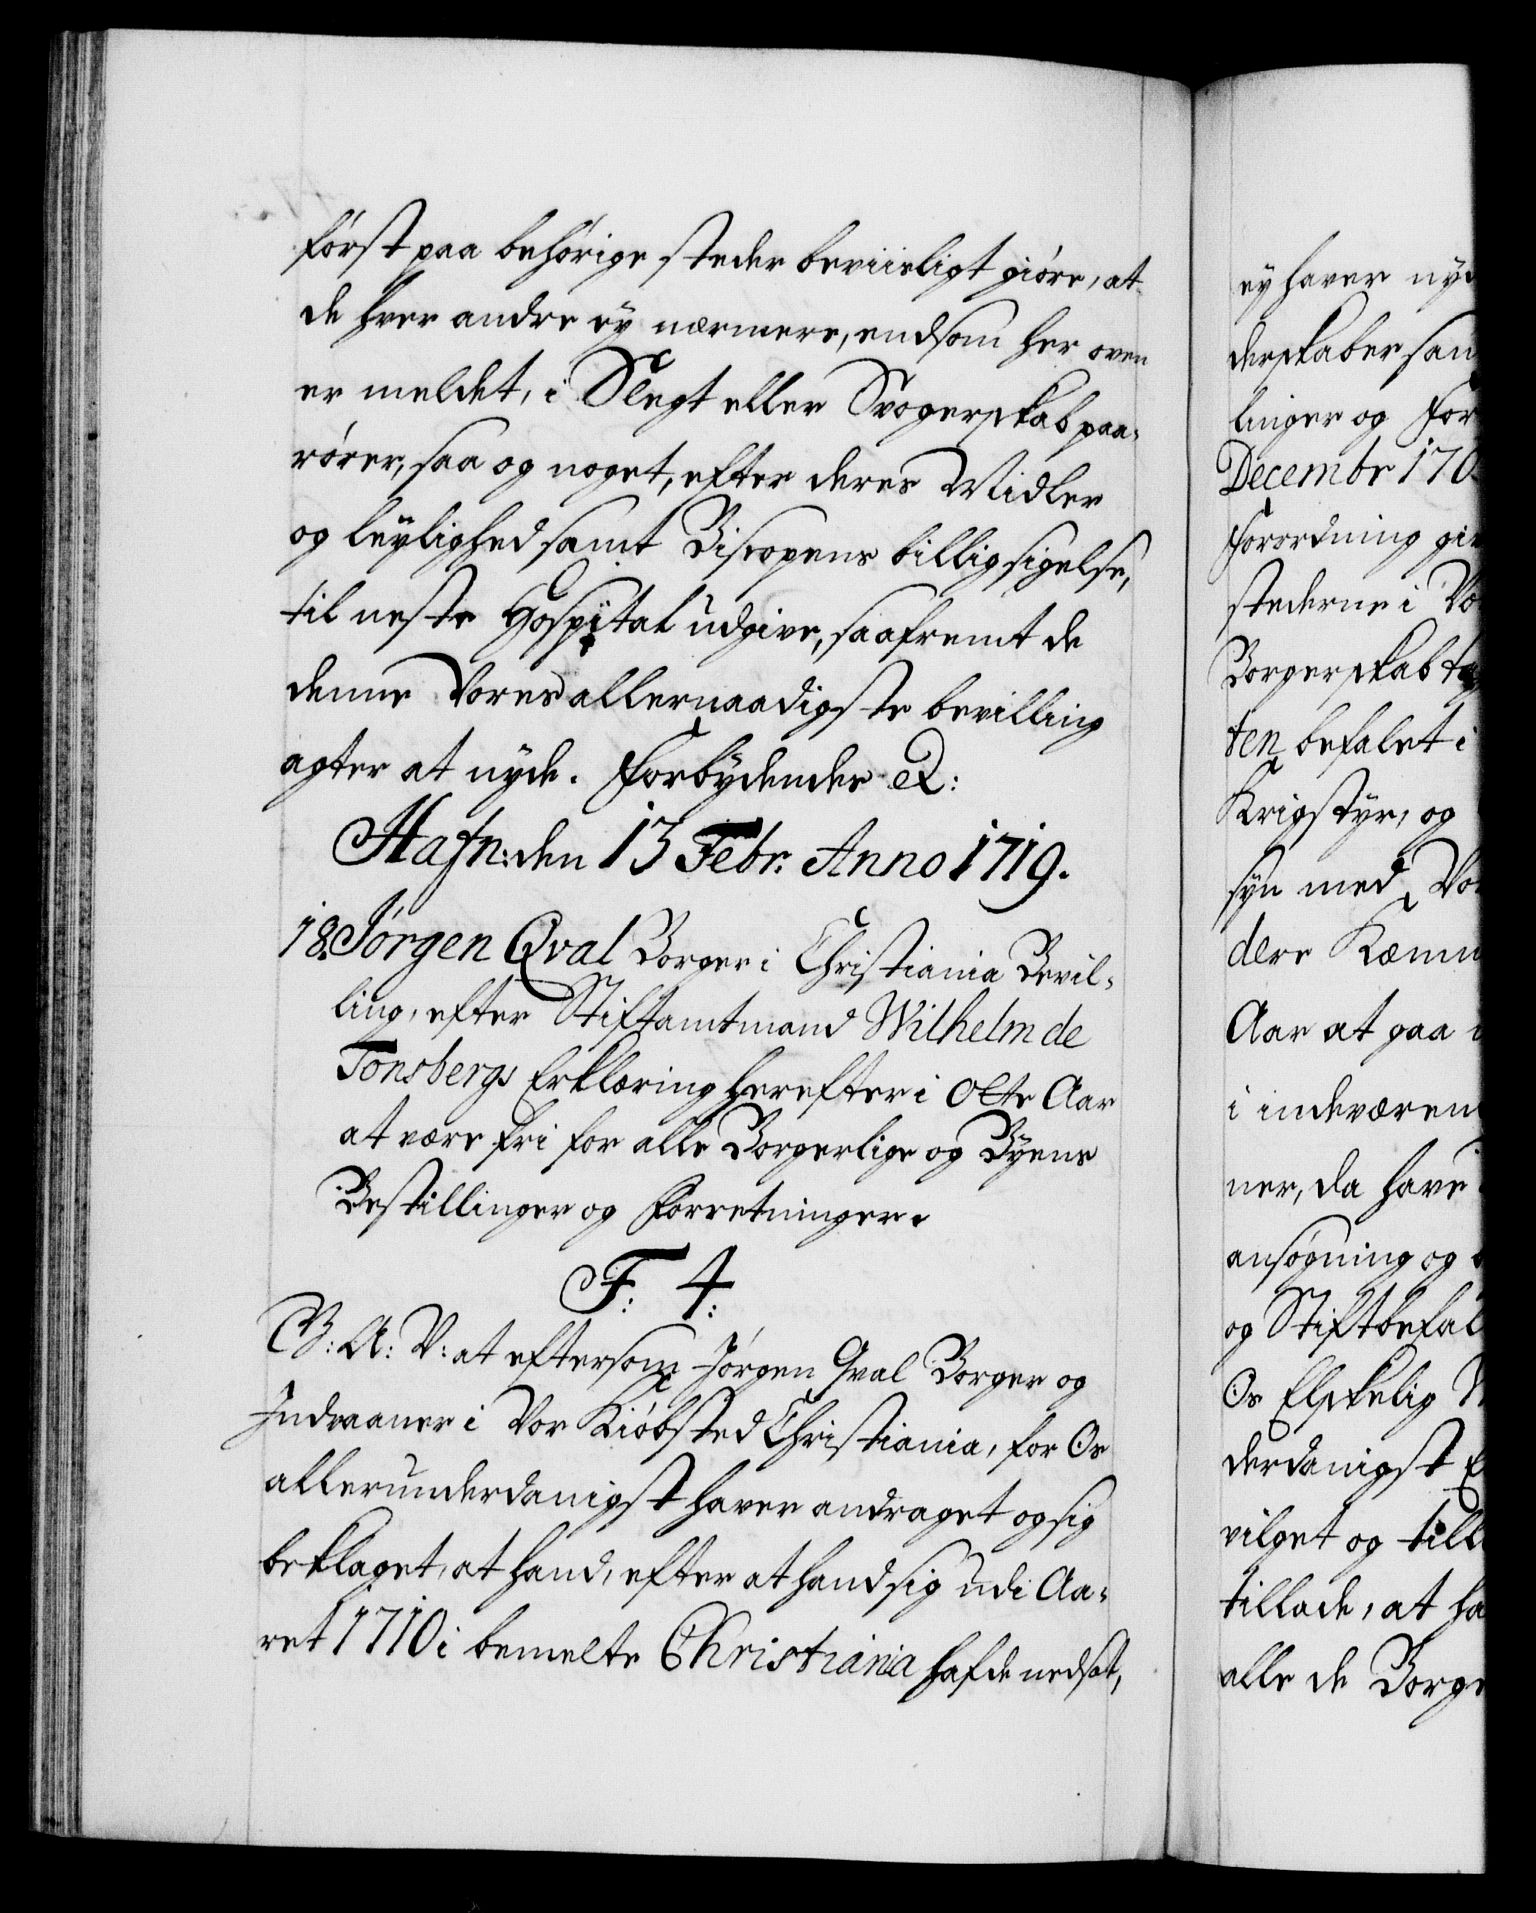 først paa behørige steder beviisligt giøre, at
de hver andre ey nærmere, endsom her oven
er meldet, i Slegt eller Svogerskab paa-
rører, saa og noget, efter deres Midler
og leylighed samt Biscopens billig sigelse,
til neste Hospital udgive, saafremt de
denne Vores allernaadigste bevilling
agter at nyde. Forbydendes &:
Hafn: den 13 Febr: Anno 1719.
18. Jørgen Qval Borger i Christiania Bevil-
ling, efter Stiftamtmand Wilhelm de
Tonsbergs Erklæring herefter i Otte Aar
at være fri for alle Borgerlige og Byens
Bestillinger og Forretninger.
F: 4:
G: A: V: at eftersom Jørgen Qval Borger og
Indvaaner i Vor Kiøbsted Christiania, for Os
allerunderdanigst haver andraget og sig
beklaget, at hand, efter at hand sig udi Aa-
ret 1710 i bemelte Christiania hafde nedsat,
ey haver
derskaber
linger og For
Decembr 170
Forordning
stederne i Vo
Borgerskab
ten befalet i
Krigstyr, og
syn med Vo
dere
Aar at gaa
i indeværen
ner, da have
ansøgning og
og Stiftbefal
Os Elskelig
derdanigst
vilget og till
tillade, at ha
alle de Borge